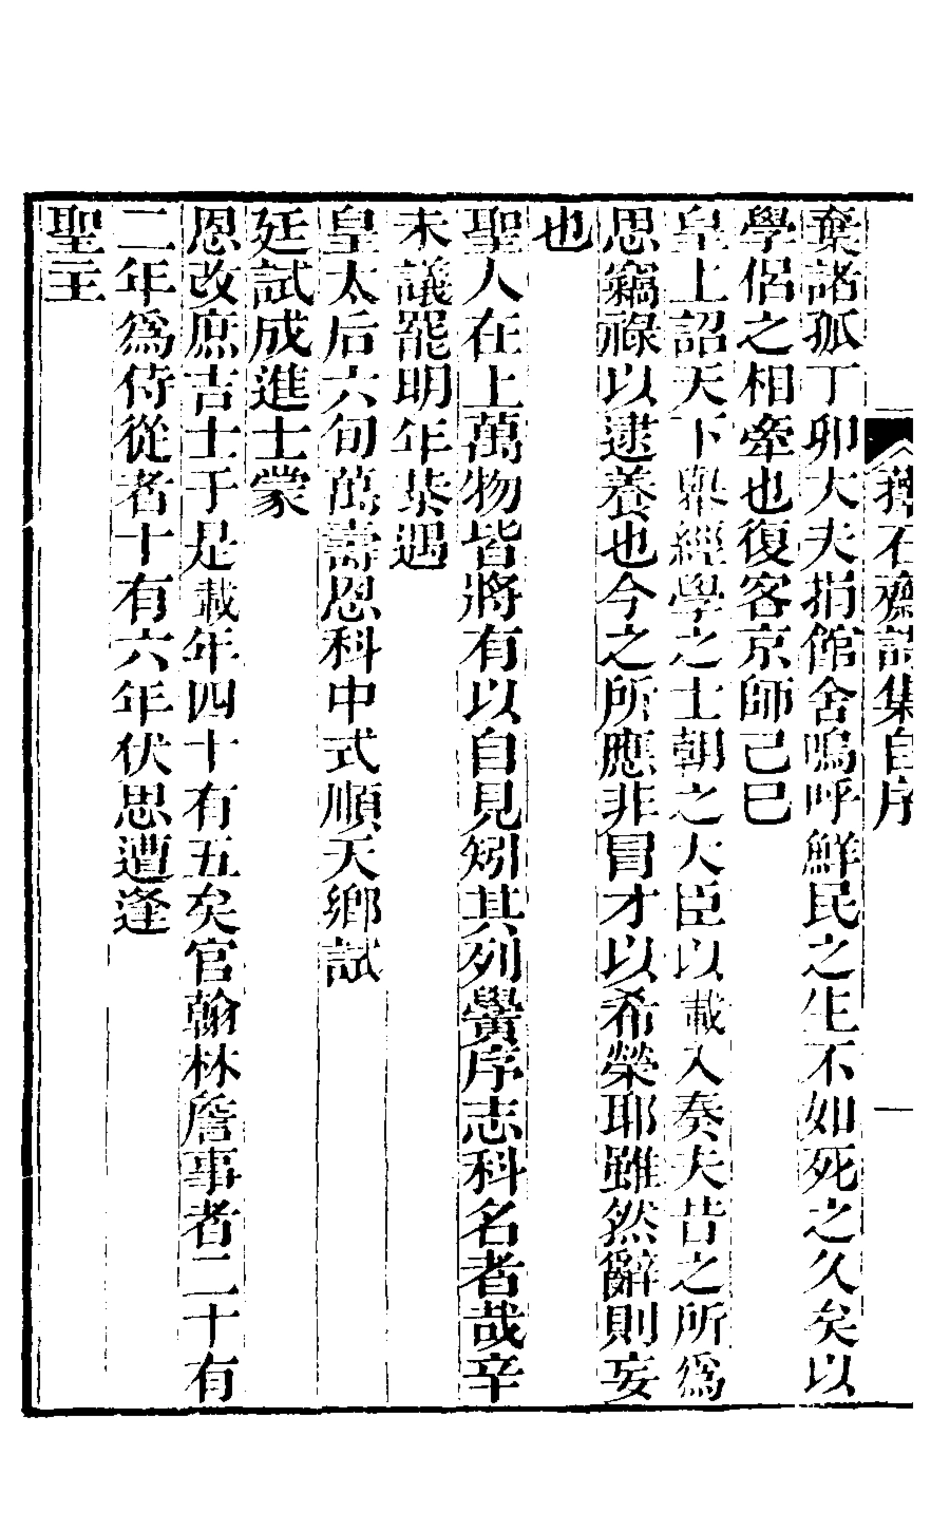 蘀石齋詩集自序
一
棄諸孤丁卯大夫捐館舍嗚呼鮮民之生不如死之久矣以
學侶之相牽也復客京師己巳
皇上詔天下舉經學之士朝之大臣以載入奏夫昔之所爲
思竊祿以逮養也今之所應非冒才以希榮耶雖然辭則妄
也
聖人在上萬物皆將有以自見矧其列黌序志科名者哉辛
未議罷明年恭遇
皇太后六旬萬壽恩科中式順天鄉試
廷試成進士蒙
恩改庶吉士于是載年四十有五矣官翰林詹事者二十有
二年爲侍從者十有六年伏思遭逢
聖主